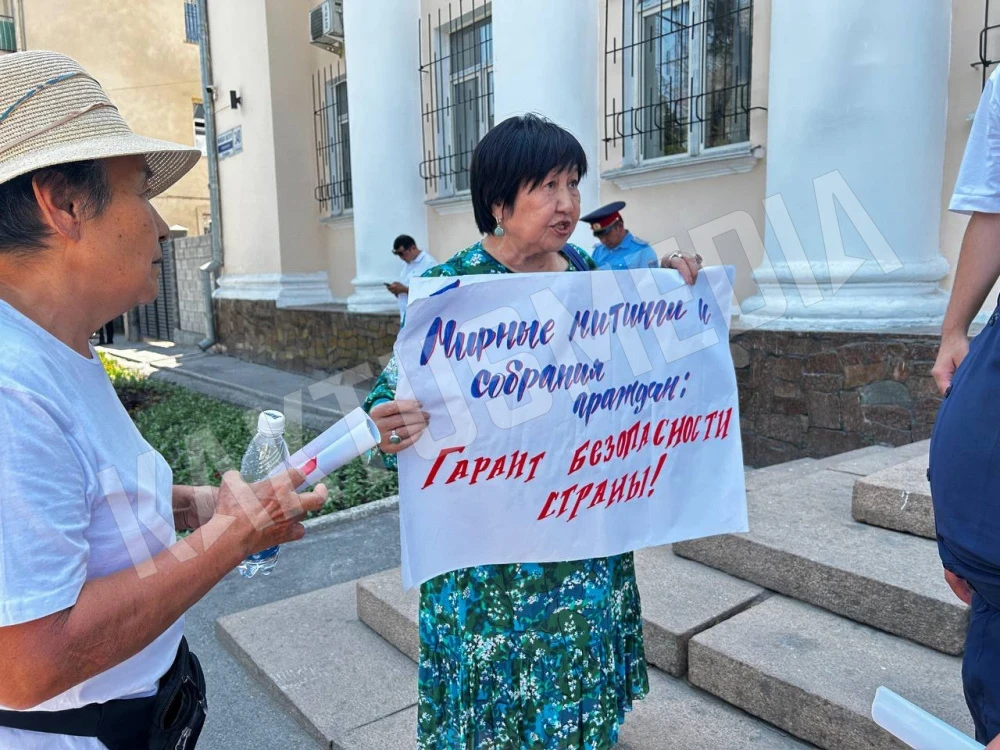 Мирные митинги и
собрания
граждан:
Гарант безопасности
страны!
KAKTUSMEDIA